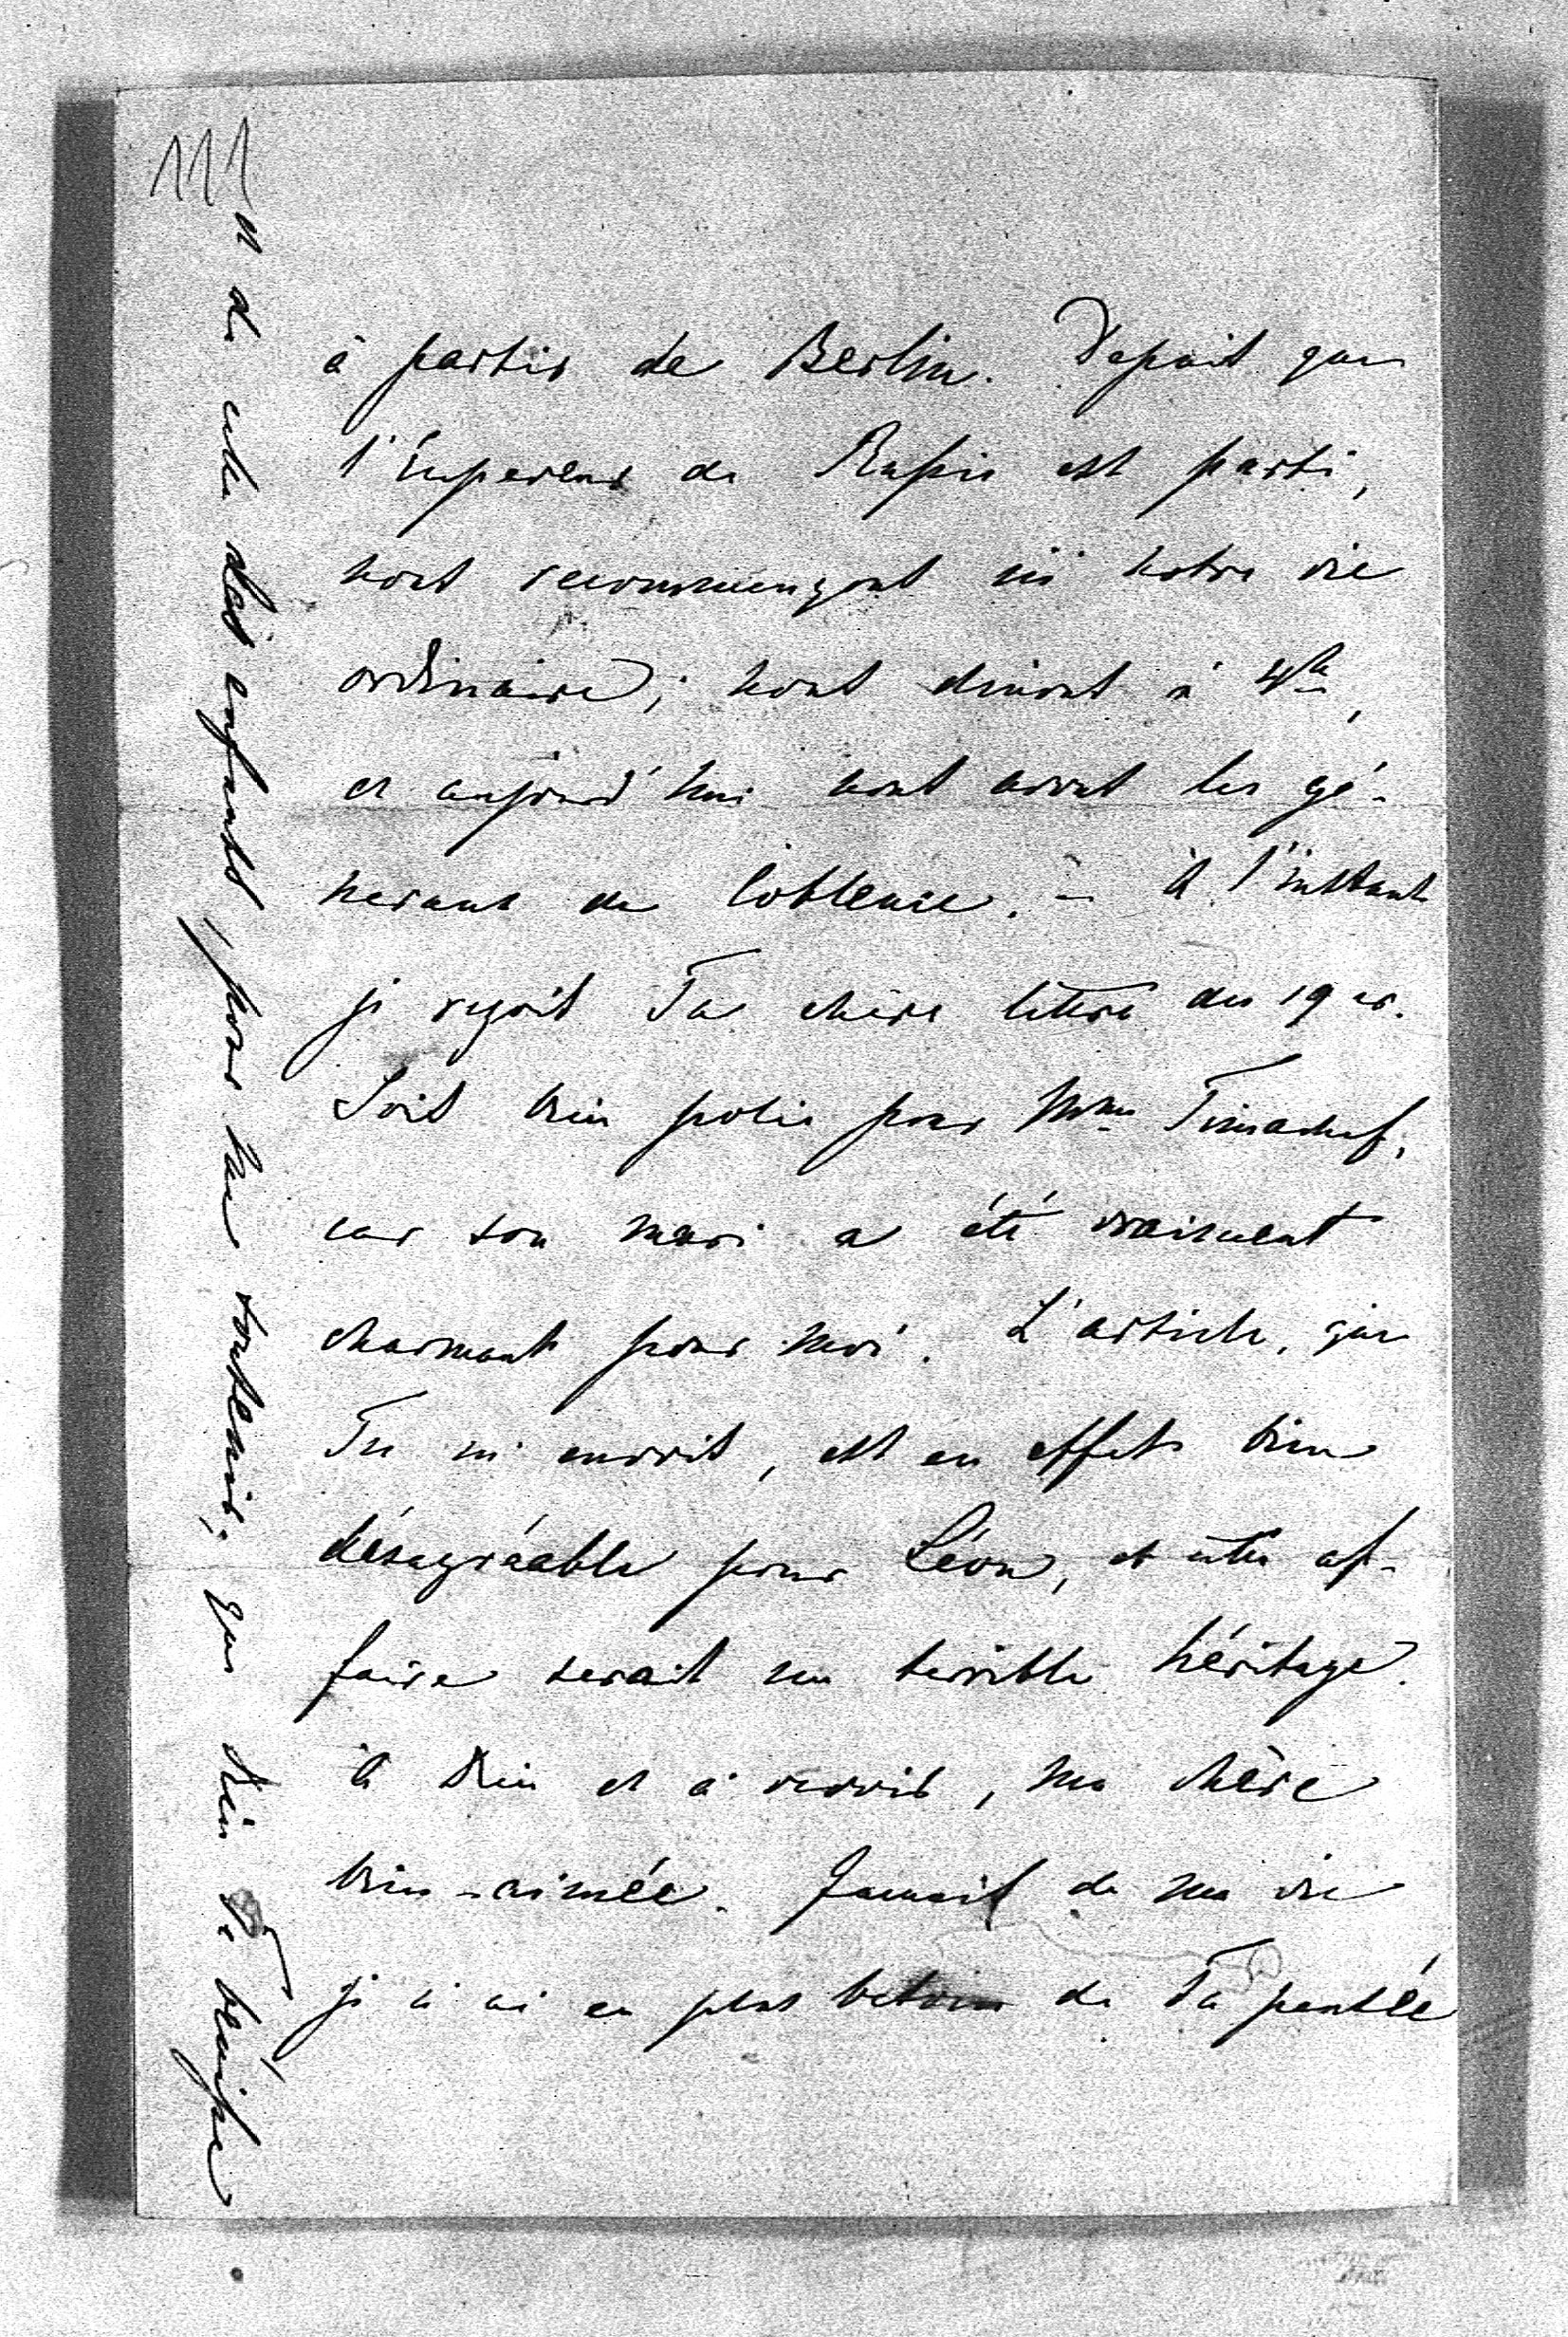 111
à partir de Berlin. Depuis que
l'Empereur de Russie est parti,
nous recommençons ici notre vie
ordinaire; nous dinons à 4h,
et aujourd'hui nous avons les gé-
neraux de Coblence. – À l'instant
je reçois Ta chère lettre du 19 cr.
Sois bien polie pour Mme Timachef,
car son mari a été vraiment
charmant pour moi. L'article, que
Tu m'envois, est en effet bien
désagréable pour Léon, et cette af-
faire serait un terrible héritage.
à Dieu et à revoir, ma chère
bien-aimée. Jamais de ma vie
je n'ai eu plus besoin de Ta pensée
et de celle des enfants, pour me soutenir; que Dieu Te bénisse